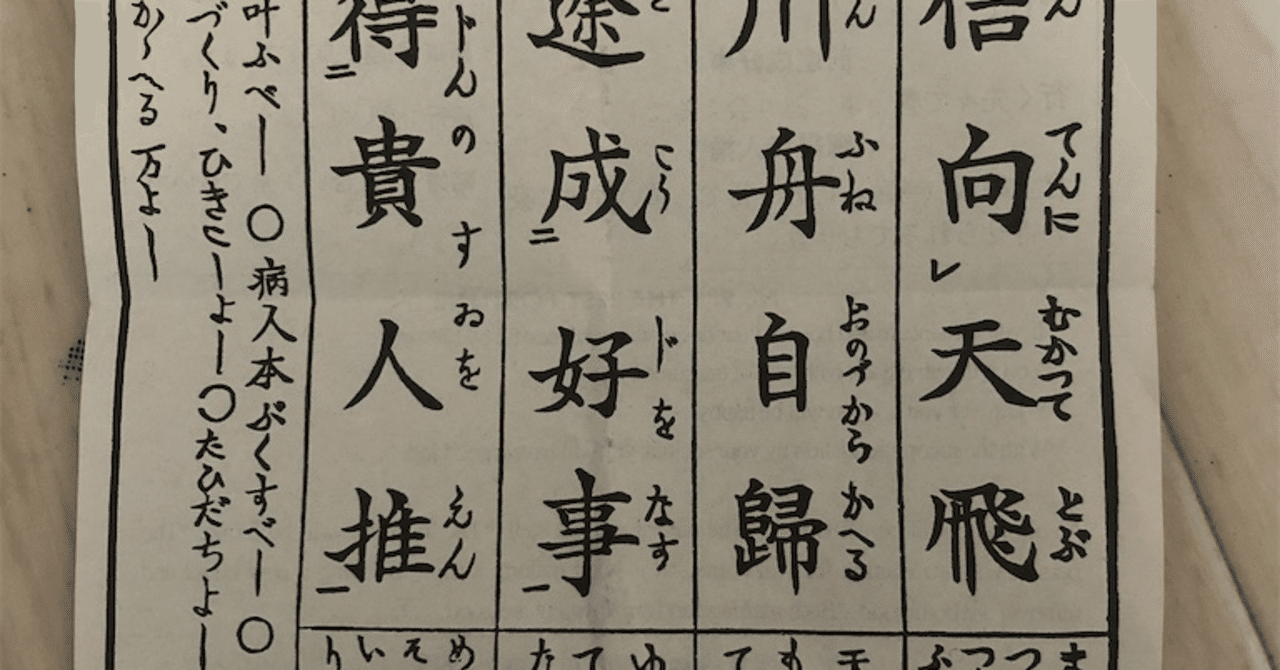 てんに むかつて とぶ
信向レ天飛
ん ふね おのづから かへる
川舟自歸
と こう じを なす
途成二好事一
んの すゐを えん
得二貴人推一
叶ふべし ○病人本ぷくすべし ○
づくり、ひきこしよし○たひだちよし
かゝへる 万よし